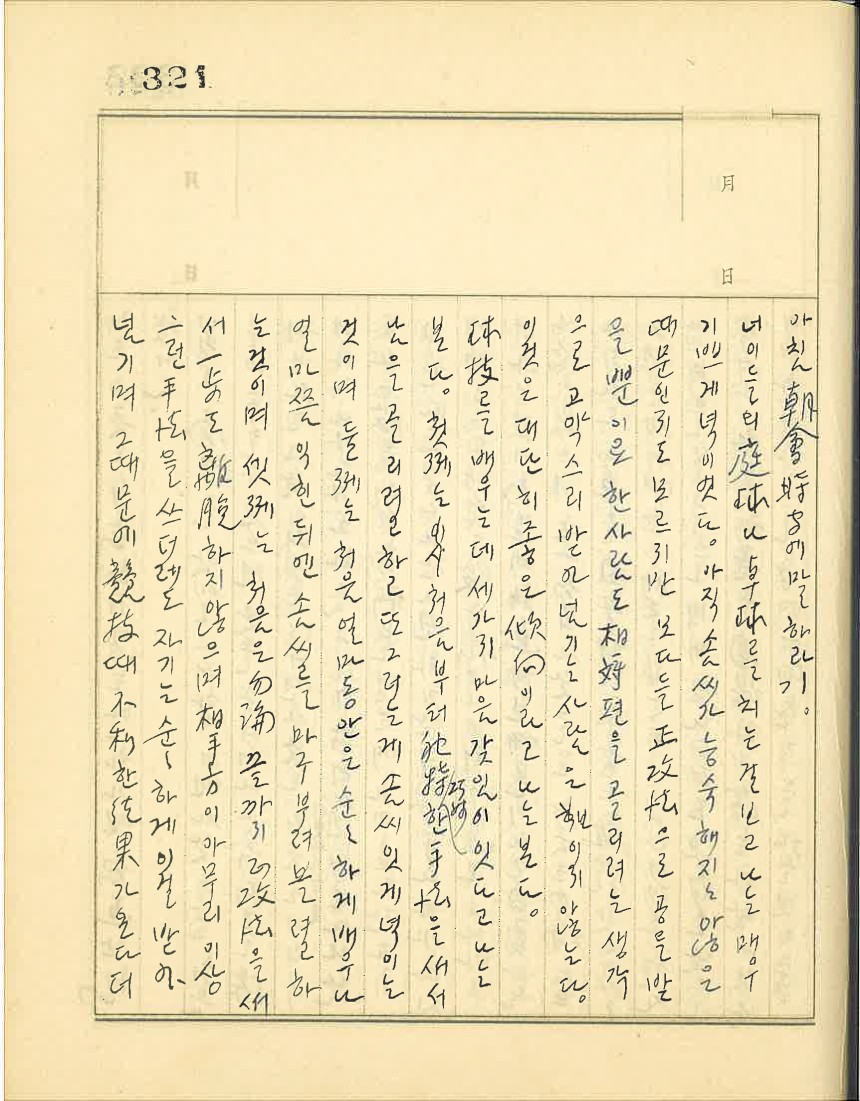 321
月
日
아침 朝會時方에 말하라기。
너이들의 庭球나 卓球를 치는걸 보고 나는 매우
기쁘게 녁이엿다。 아직 솜씨가 능숙해지는 않은
때문인지도 모르지만 모다들 正攻法으로 공을 받
을뿐 이은 한사람도 相對편을 골리려는 생각
으로 고약스리 받아 넘기는 사람은 하나이지 않는다。
이것은 대단히 좋은 傾向이라고 나는 본다。
球技를 배우는데 세가지 마음 갖임이 잇다고 나는
본다。 첫재는 처음부터 奇妙한 手法을 새서
남을 골리려고 하고 또 그러는게 솜씨잇게 녁이는
것이며 둘재는 처음 얼마동안은 순순하게 배우나
얼마쯤 익힌뒤엔 솜씨를 마구 부려 볼려 하
는것이며 셋재는 처음은 勿論 끝까지 正攻法을 써
서 一步도 離脫하지 않으며 相手方이 아무리 이상
스런 手法을 쓰더래도 자기는 순순하게 이걸 받아
넘기며 그때문에 競技때 不利한 結果가 온다더